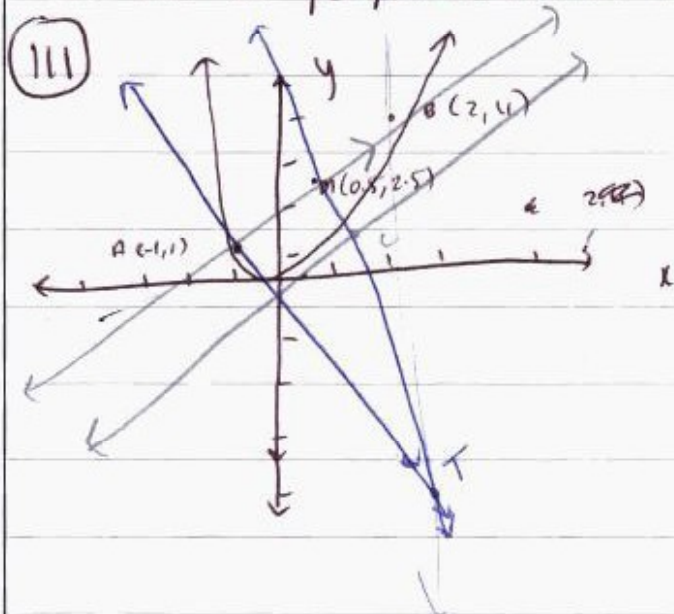 III
y
B (2, 4)
M(0.5, 2.5)
A (-1, 1)
x
T